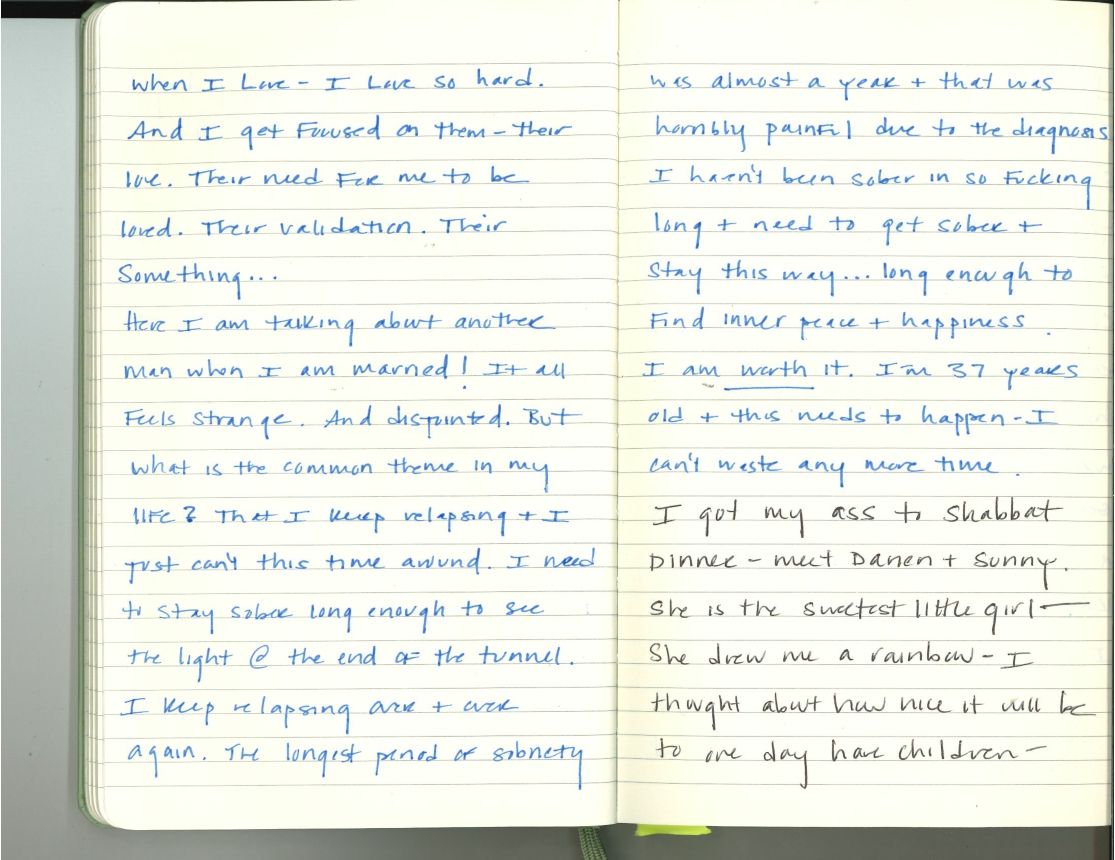 when I Love - I Love so hard.
And I get Focused on them - their
love. Their need For me to be
loved. Their validation. Their
Something...
Here I am talking about another
man when I am married! It all
Feels strange. And disjointed. But
what is the common theme in my
life? That I keep relapsing + I
just can't this time around. I need
to stay sober long enough to see
the light @ the end of the tunnel.
I keep relapsing over + over
again. The longest period of sobriety
was almost a year + that was
horribly painful due to the diagnosis
I haven't been sober in so fucking
long + need to get sober +
stay this way... long enough to
Find inner peace + happiness.
I am worth it. I'm 37 years
old + this needs to happen - I
can't waste any more time.
I got my ass to Shabbat
Dinner - meet Darren + Sunny.
She is the sweetest little girl -
She drew me a rainbow - I
thought about how nice it will be
to one day have children -